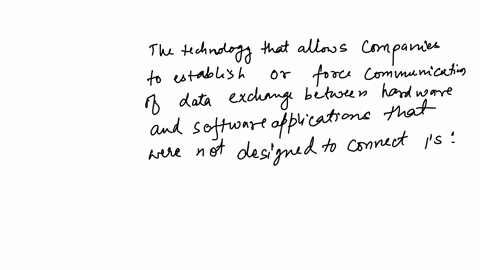 The technology that allows Companies
to establish or force Communication
of data exchange between hardware
and software applications that
were not designed to connect is: